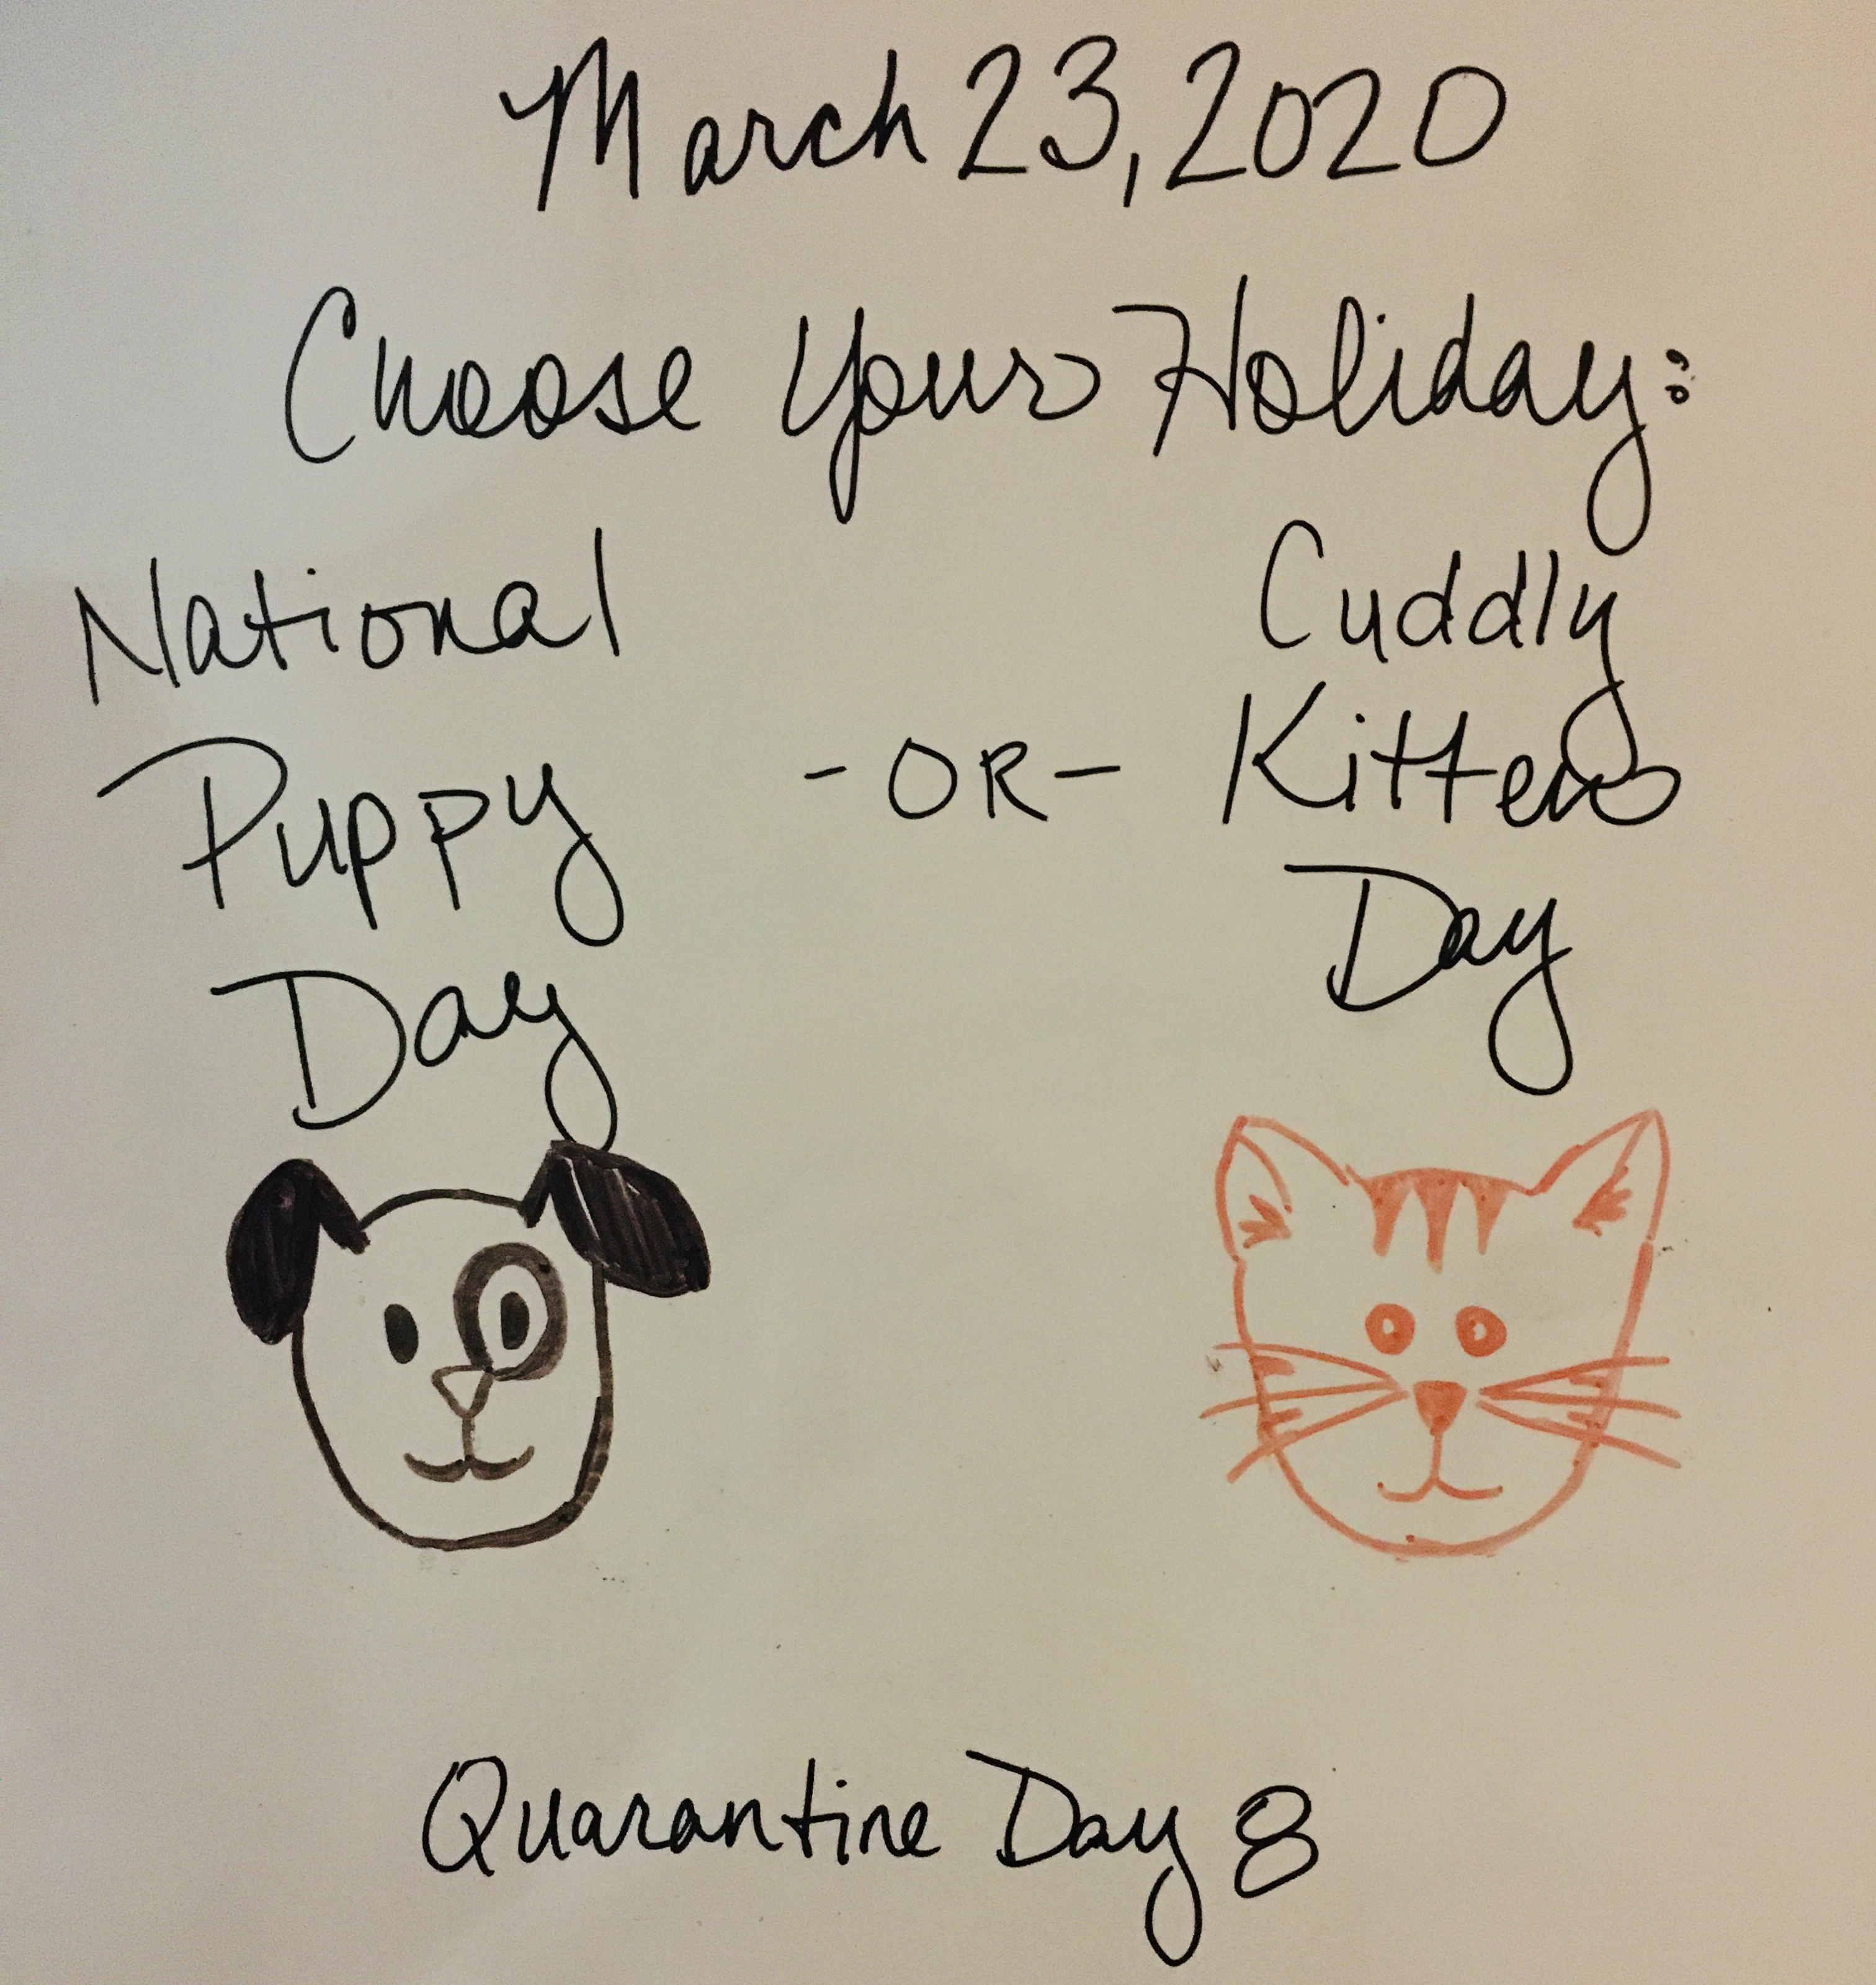 March 23, 2020
Choose Your Holiday:
National
Puppy
Day
-OR-
Cuddly
Kitten
Day
Quarantine Day 8